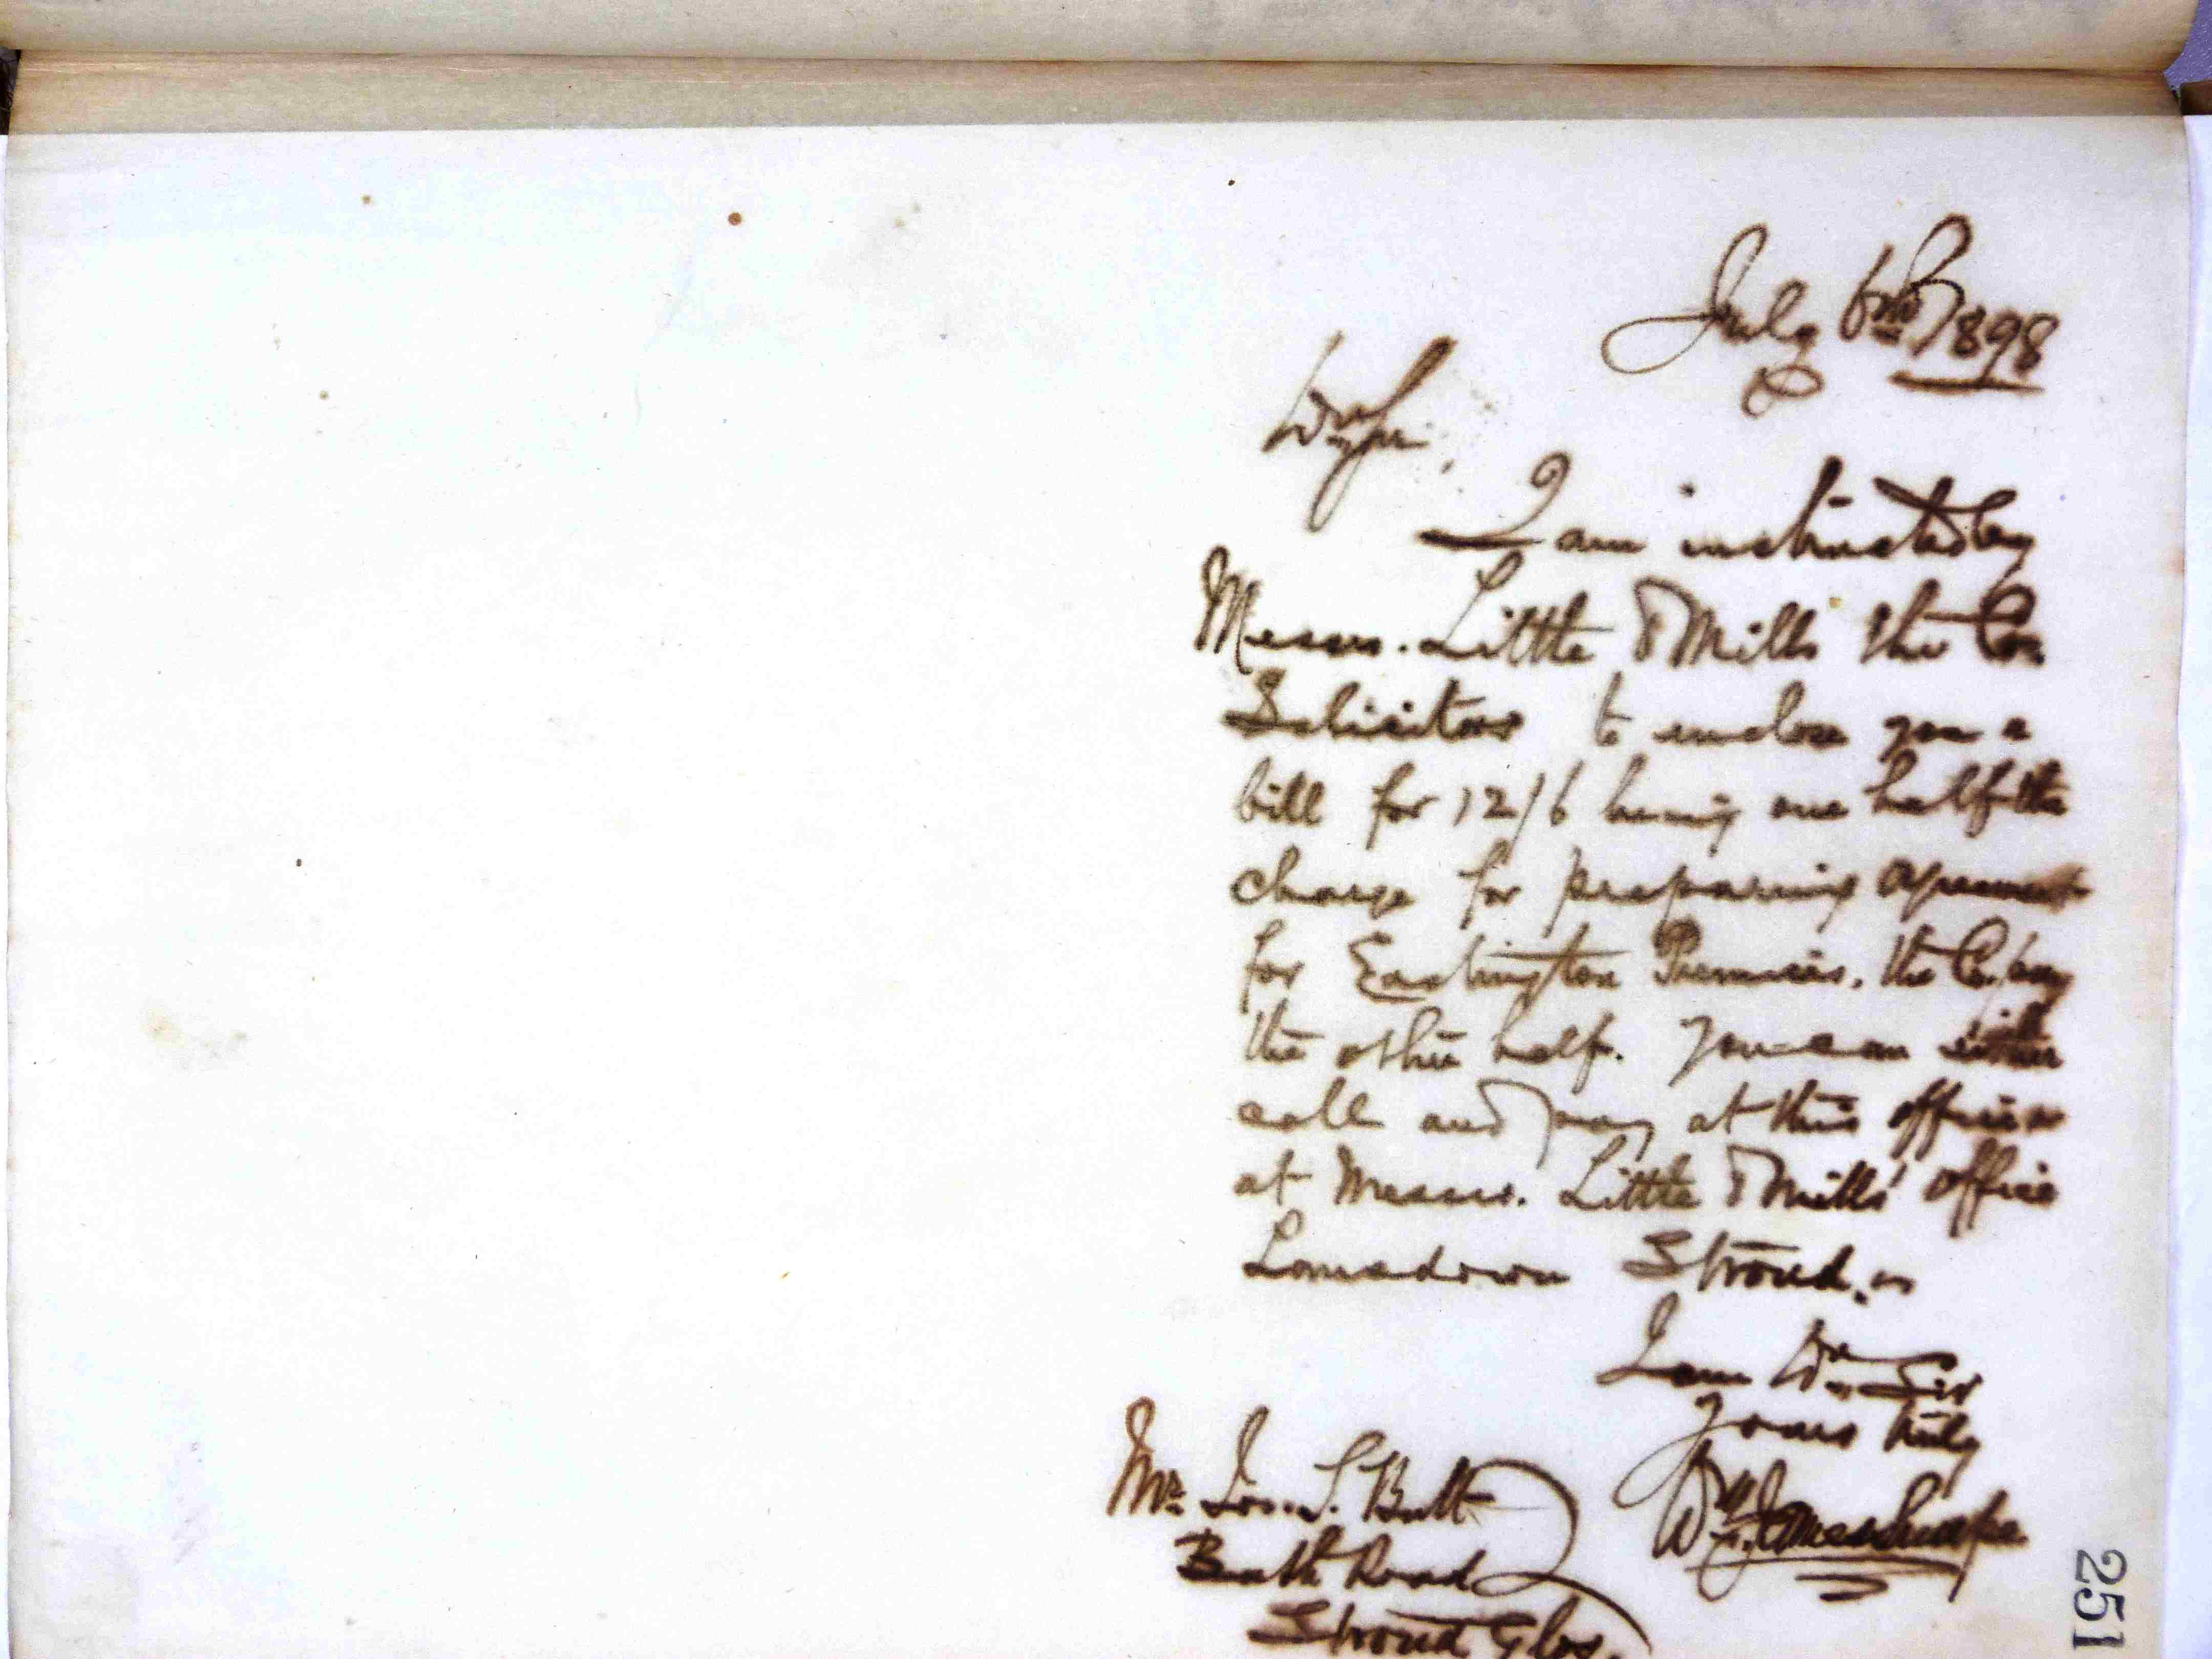 July 6th 1898
Dr Sir,
I am instructed by
Messrs. Little & Mills the Co's
Solicitors to enclose you a
bill for 12/6 being one half the
charge for preparing agreement
for Eastington Premises, the Co. pay
the other half. You can either
call and pay at this office or
at Messrs. Little & Mills' office
Lansdown Stroud.
I am Dr Sir
Yours truly
Wm James
Mr Jos. S. Butt
Bath Road
Stroud Glos.
251